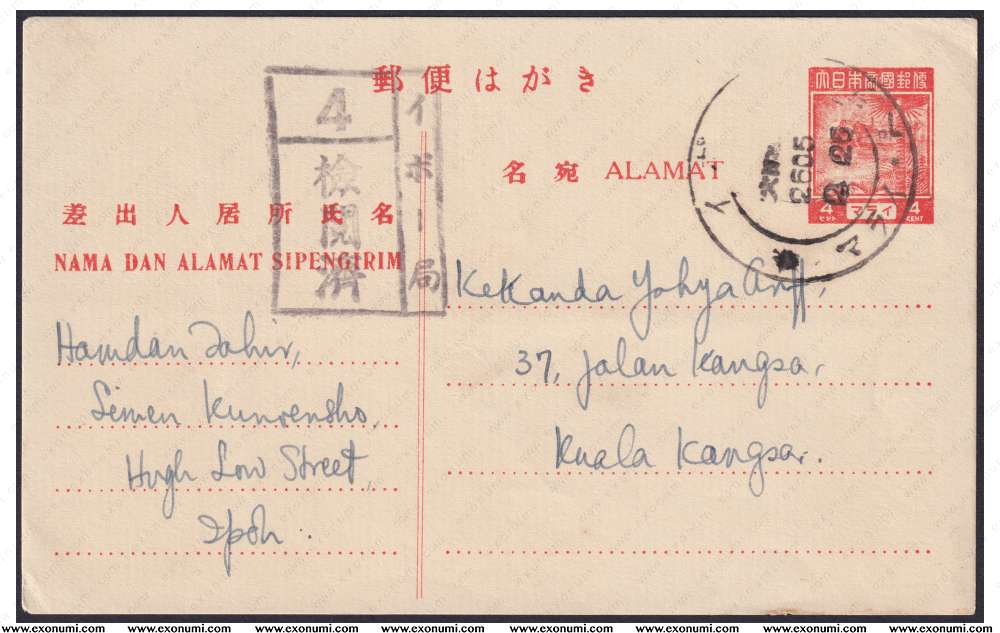 郵便はがき
大日本帝國郵便
4 セント マライ 4 CENT
名宛 ALAMAT
2605
2 25
マライ
イポー局
4
檢閲濟
差出人居所氏名
NAMA DAN ALAMAT SIPENGIRIM
Hamdan Tahir,
Seinen Kunrensho,
Hugh Low Street,
Ipoh.
Kekanda Yahya Ariff,
37, Jalan Kangsa,
Kuala Kangsar.
www.exonumi.com www.exonumi.com www.exonumi.com www.exonumi.com www.exonumi.com www.exonumi.com www.exonumi.com www.exonumi.com